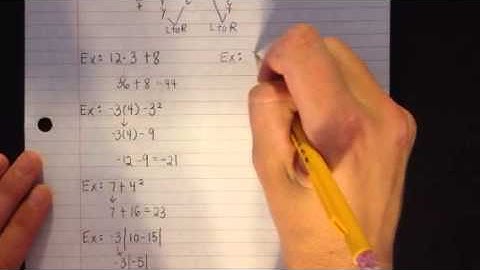 LtoR LtoR
Ex: 12·3 +8
36 + 8 = 44
Ex: -3(4) - 3²
-3(4) - 9
-12 - 9 = -21
Ex: 7 + 4²
7 + 16 = 23
Ex: -3|10-15|
-3|-5|
Ex: